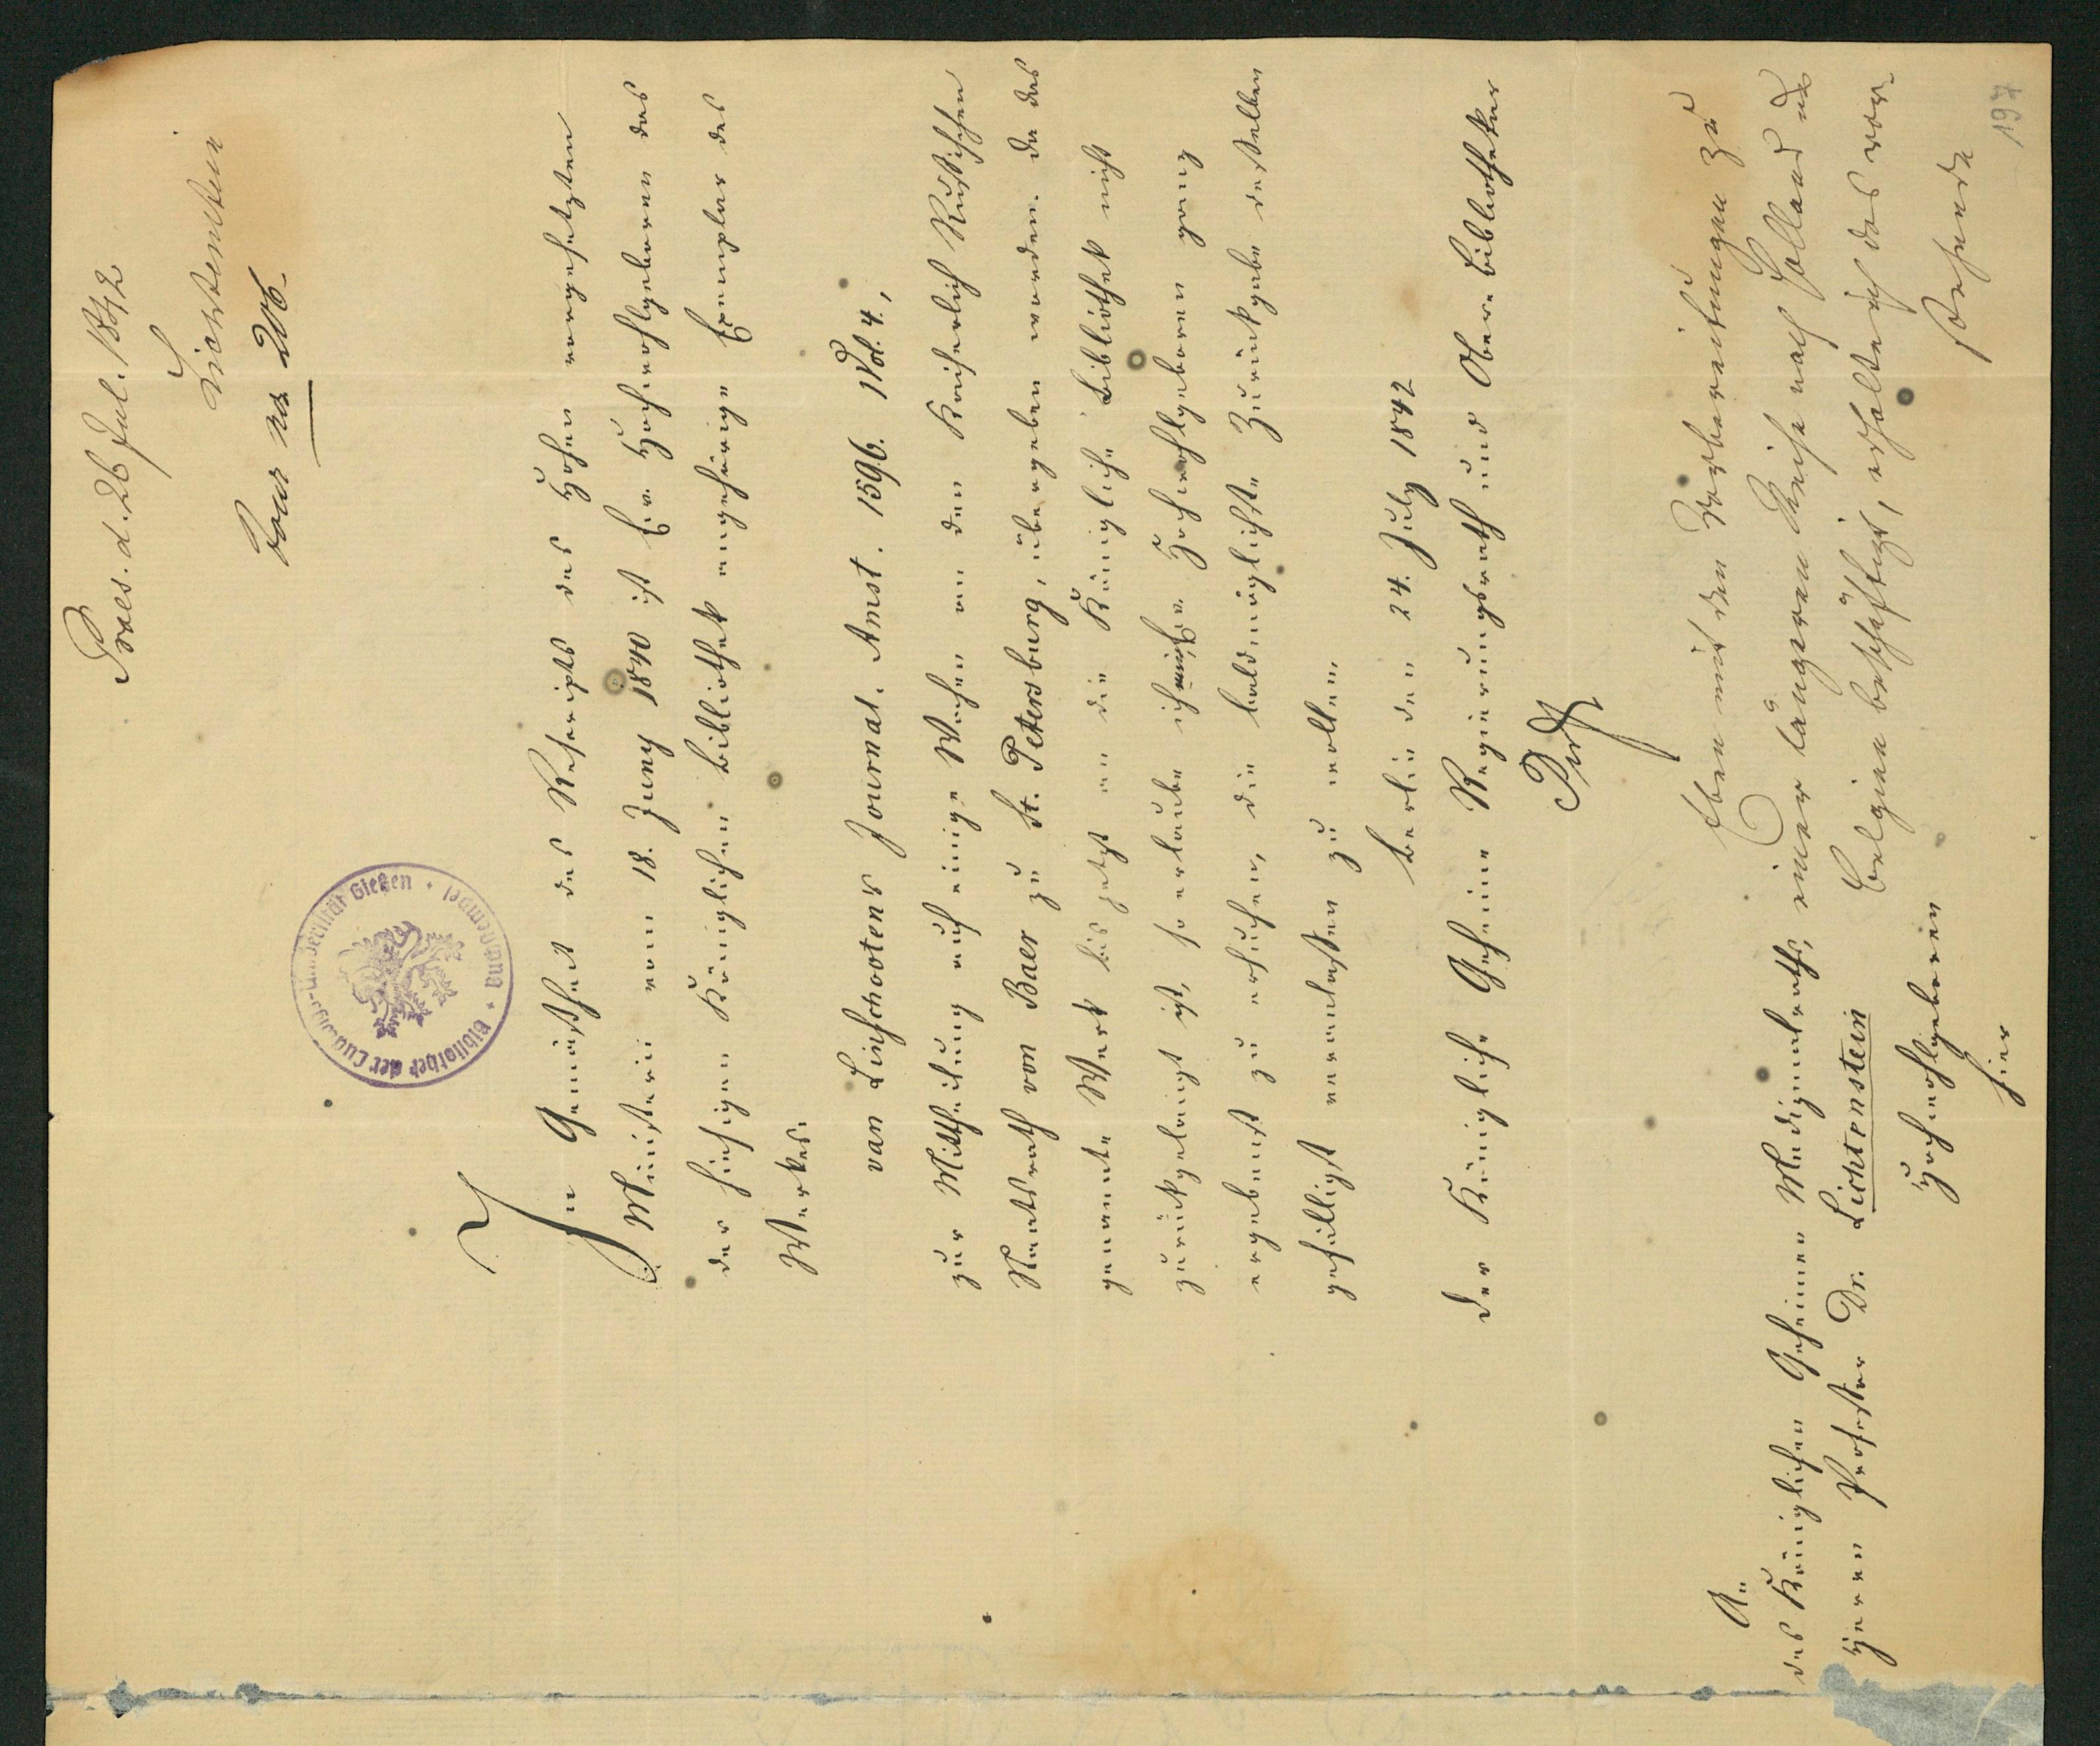 Praes. d. 26 Jul. 1842
Lichtenstein
Baer
In Gemäßheit des Rescripts des hohen vorgesetzten
Ministerii vom 18. Juny 1840 ist Ew. Hochwohlgeboren das
der hiesigen Königlichen Bibliothek angehörige Exemplar des
Werkes:
van Linschootens Journal. Amst. 1596. 1 Vol. 4,
zur Mittheilung auf einige Wochen an den Kaiserlich Russischen
Staatsrath von Baer zu St. Petersburg, übergeben worden. Da das
genannte Werk bis jetzt an die Königliche Bibliothek nicht
zurückgelangt ist, so erlaube ich mir, Ew. Hochwohlgeboren ganz
ergebenst zu ersuchen, die baldmöglichste Zurückgabe desselben
gefälligst veranlassen zu wollen.
Berlin den 24. July 1842
Der Königliche Geheime Regierungsrath und Ober-Bibliothekar
Pertz
An
des Königlichen Geheimen Medizinalraths,
Herrn Professor Dr. Lichtenstein
Hochwohlgeboren
hier
Eben mit den Vorbereitungen zu
einer längeren Reise nach Holland und
Belgien beschäftigt, erhalte ich das vor-
stehende
197
Bibliothek der Ludwigs-Universität Gießen